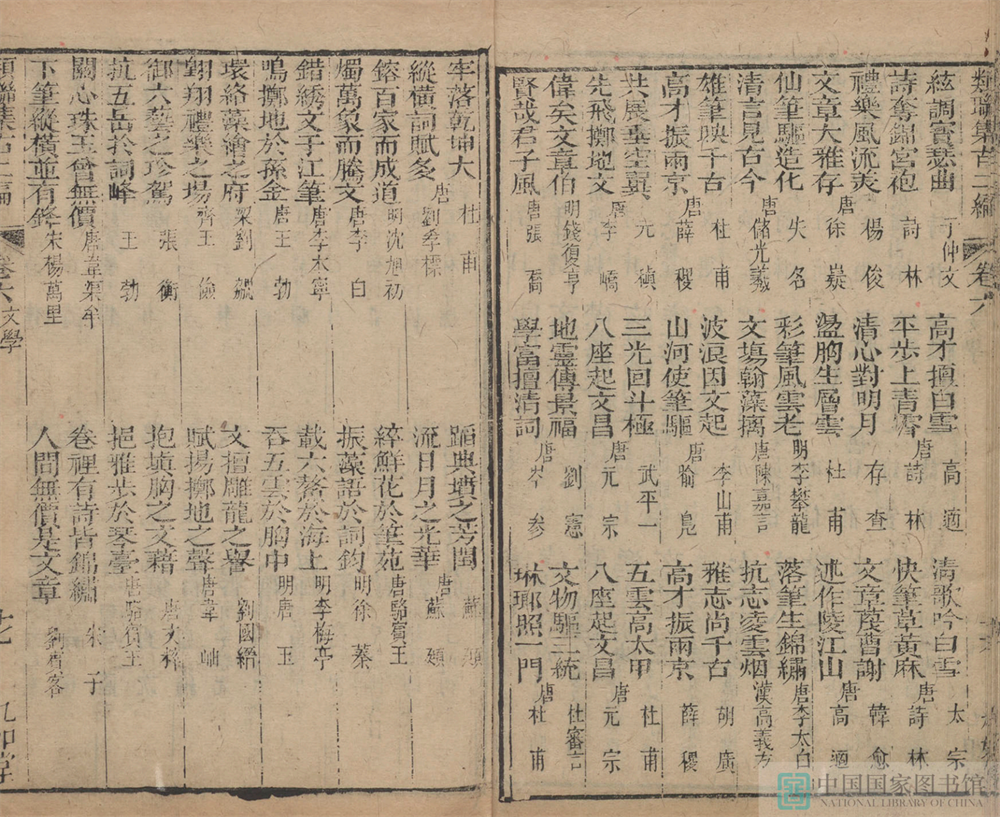 類聯集古二編 卷六
絃調寶瑟曲 于仲文 高才擅白雪 唐高適 清歌吟白雪 太宗
詩奪錦宮袍 詩林 平步上青霄 唐詩林 快筆草黃麻 唐詩林
禮樂風流美 楊俊 清心對明月 存查 文章蔑曹謝 韓愈
文章大雅存 唐徐嶷 盪胸生層雲 杜甫 述作陵江山 唐高適
仙筆驅造化 失名 彩筆風雲老 明李攀龍 落筆生錦繡 唐李太白
清言見古今 唐儲光羲 文塲翰藻摛 唐陳嘉言 抗志凌雲烟 漢高義方
雄筆映千古 杜甫 波浪因文起 李山甫 雅志尚千古 胡廣
高才振兩京 唐薛稷 山河使筆驅 唐喻鳧 高才振兩京 薛稷
共展垂空翼 元稹 三光回斗極 武平一 五雲高太甲 杜甫
先飛擲地文 唐李嶠 八座起文昌 唐元宗 八座起文昌 唐元宗
偉矣文章伯 明錢復亨 地靈傳景福 劉憲 文物驅三統 杜審言
賢哉君子風 唐張喬 學富擅清詞 唐岑參 琳瑯照一門 唐杜甫
牢落乾坤大 杜甫 蹈典墳之芳閫 蘇頲
縱橫詞賦多 唐劉季標 流日月之光華 唐蘇頲
鎔百家而成道 明沈旭初 綷鮮花於筆苑 唐駱賓王
燭萬象而騰文 唐李白 振藻語於詞鈞 明徐蓁
錯綉文于江筆 唐李本寧 載六鰲於海上 明李梅亭
鳴擲地於孫金 唐王勃 吞五雲於胸中 明唐玉
環絡藻繪之府 梁劉勰 文擅雕龍之譽 劉國縉
翱翔禮樂之塲 齊王儉 賦揚擲地之聲 唐韋岫
御六藝之珍駕 張衡 抱墳胸之文藉 唐大稱
抗五岳於詞峰 王勃 挹雅步於琴臺 唐駱賓王
關心珠玉曾無價 唐韋渠牟 卷裡有詩皆錦繡 朱子
下筆縱橫並有鋒 宋楊萬里 人間無價是文章 劉賓客
類聯集古二編 卷六 文學